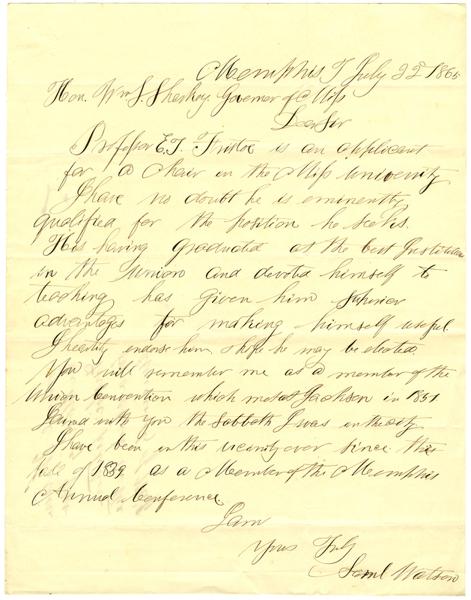 Memphis T July 22d 1865
Hon. Wm L. Sharkey Governer of Miss
Dear Sir
Professor E. T. Fristoe is an applicant
for a chair in the Miss University
I have no doubt he is eminently
qualified for the position he seeks.
His having graduated at the best Institution
in the Union and devoted himself to
teaching has given him superior
advantages for making himself useful
I heartily endorse him & hope he may be elected
You will remember me as a member of the
Union Convention which met at Jackson in 1851
I dined with you the Sabbath I was in the city
I have been in this vicinity ever since the
fall of 1839 as a Member of the Memphis
Annual Conference
I am
Yours Truly
Saml Watson